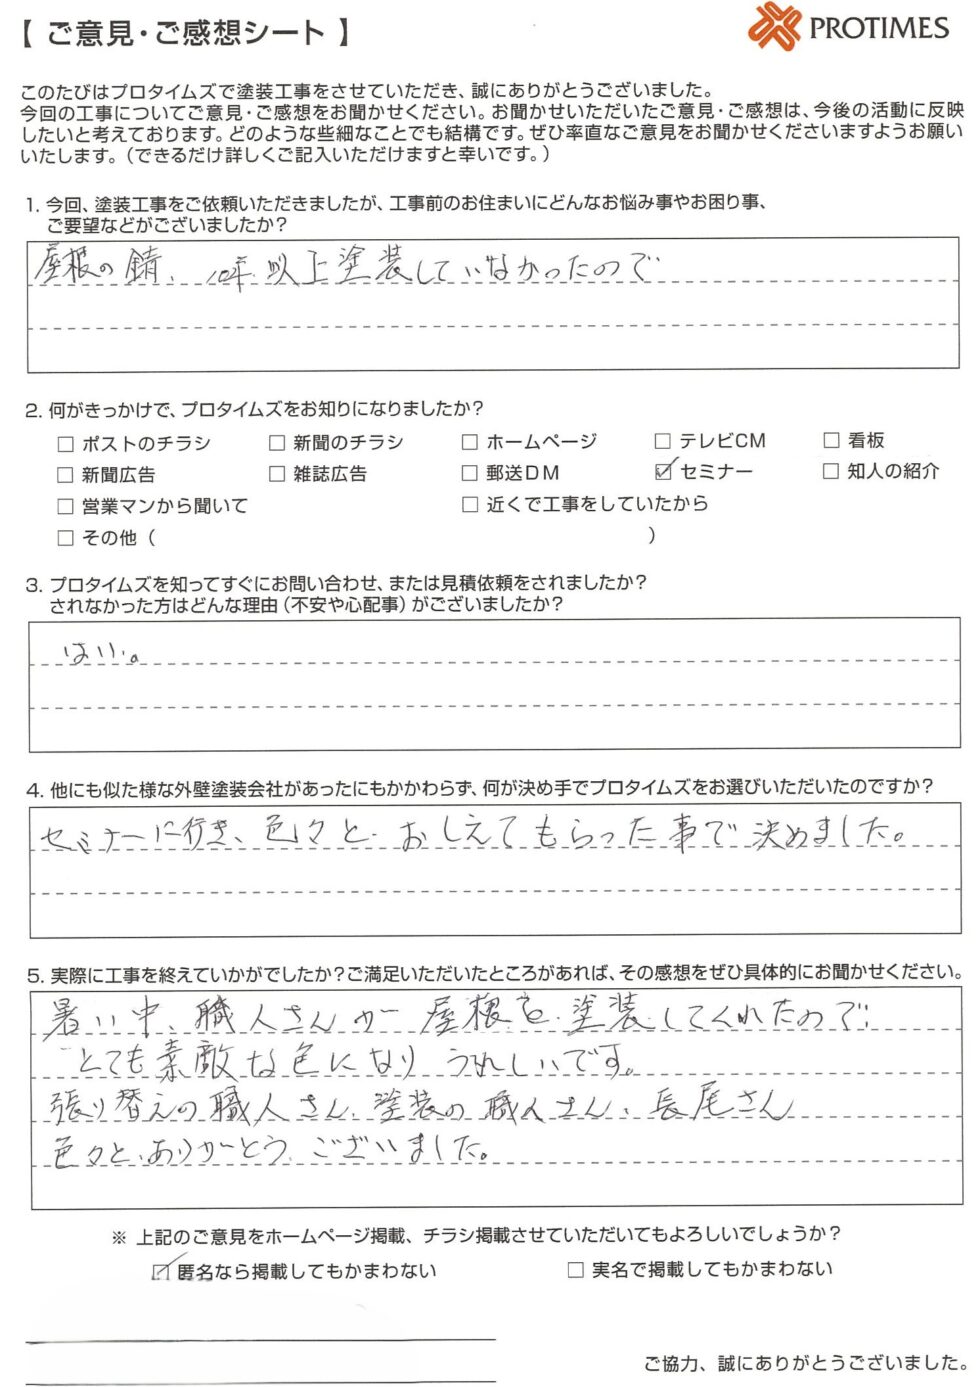 【 ご意見・ご感想シート 】
PROTIMES
このたびはプロタイムズで塗装工事をさせていただき、誠にありがとうございました。
今回の工事についてご意見・ご感想をお聞かせください。お聞かせいただいたご意見・ご感想は、今後の活動に反映
したいと考えております。どのような些細なことでも結構です。ぜひ率直なご意見をお聞かせくださいますようお願い
いたします。（できるだけ詳しくご記入いただけますと幸いです。）
1. 今回、塗装工事をご依頼いただきましたが、工事前のお住まいにどんなお悩み事やお困り事、
ご要望などがございましたか？
屋根の錆、10年以上塗装していなかったので
2. 何がきっかけで、プロタイムズをお知りになりましたか？
□ ポストのチラシ □ 新聞のチラシ □ ホームページ □ テレビCM □ 看板
□ 新聞広告 □ 雑誌広告 □ 郵送DM ☑ セミナー □ 知人の紹介
□ 営業マンから聞いて □ 近くで工事をしていたから
□ その他（ ）
3. プロタイムズを知ってすぐにお問い合わせ、または見積依頼をされましたか？
されなかった方はどんな理由（不安や心配事）がございましたか？
はい。
4. 他にも似た様な外壁塗装会社があったにもかかわらず、何が決め手でプロタイムズをお選びいただいたのですか？
セミナーに行き、色々と おしえてもらった事で決めました。
5. 実際に工事を終えていかがでしたか？ご満足いただいたところがあれば、その感想をぜひ具体的にお聞かせください。
暑い中、職人さんが 屋根を塗装してくれたので
とても素敵な色になり うれしいです。
張り替えの職人さん、塗装の職人さん、長尾さん
色々と、ありがとう ございました。
※ 上記のご意見をホームページ掲載、チラシ掲載させていただいてもよろしいでしょうか？
☑ 匿名なら掲載してもかまわない □ 実名で掲載してもかまわない
ご協力、誠にありがとうございました。